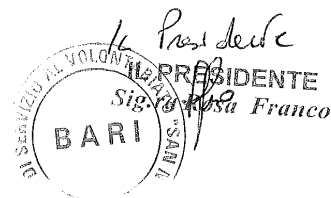 Il Presidente
IL PRESIDENTE
Sig.ra Rosa Franco
DI SERVIZIO AL VOLONTARIATO "SAN N
BARI